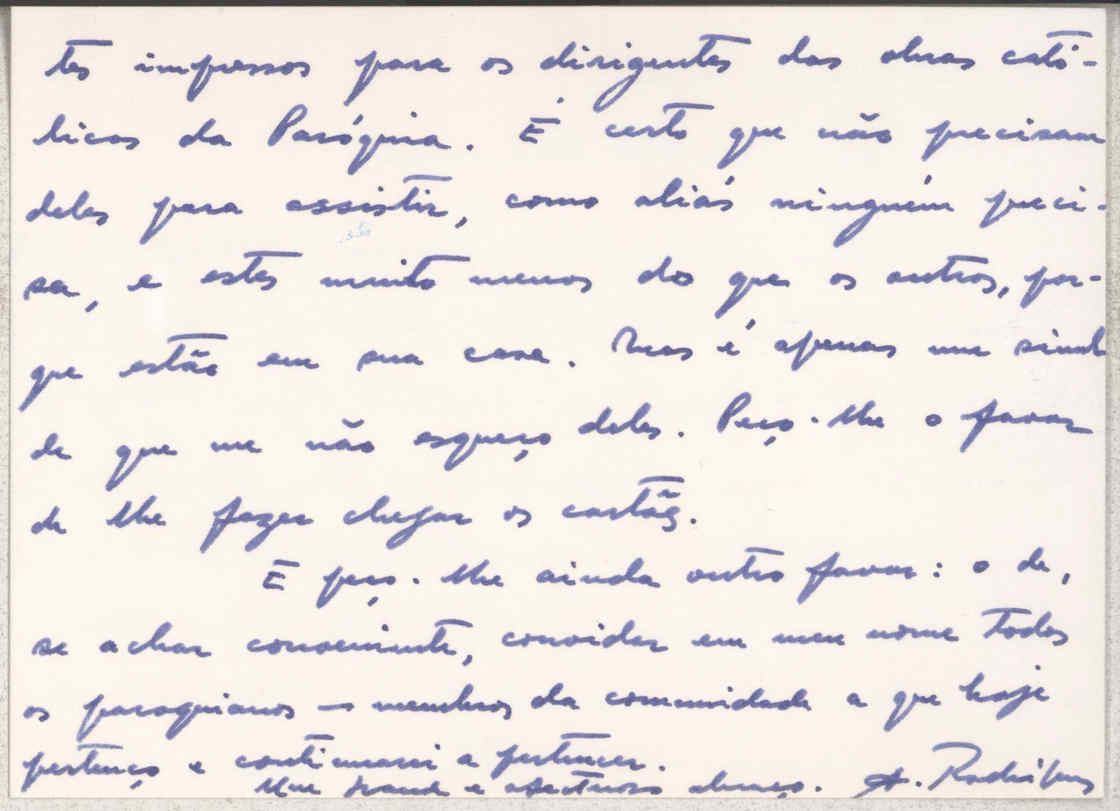 tes impressos para os dirigentes das obras cató-
licas da Paróquia. É certo que não precisam
deles para assistir, como aliás ninguém preci-
sa, e estes muito menos do que os outros, por-
que estão em sua casa. Mas é apenas um sinal
de que me não esqueço deles. Peço-lhe o favor
de lhe fazer chegar os cartões.
E peço-lhe ainda outro favor: o de,
se achar conveniente, convidar em meu nome todos
os paroquianos — membros da comunidade a que hoje
pertenço e continuarei a pertencer.
Um grande e afectuoso abraço. A. Rodrigues